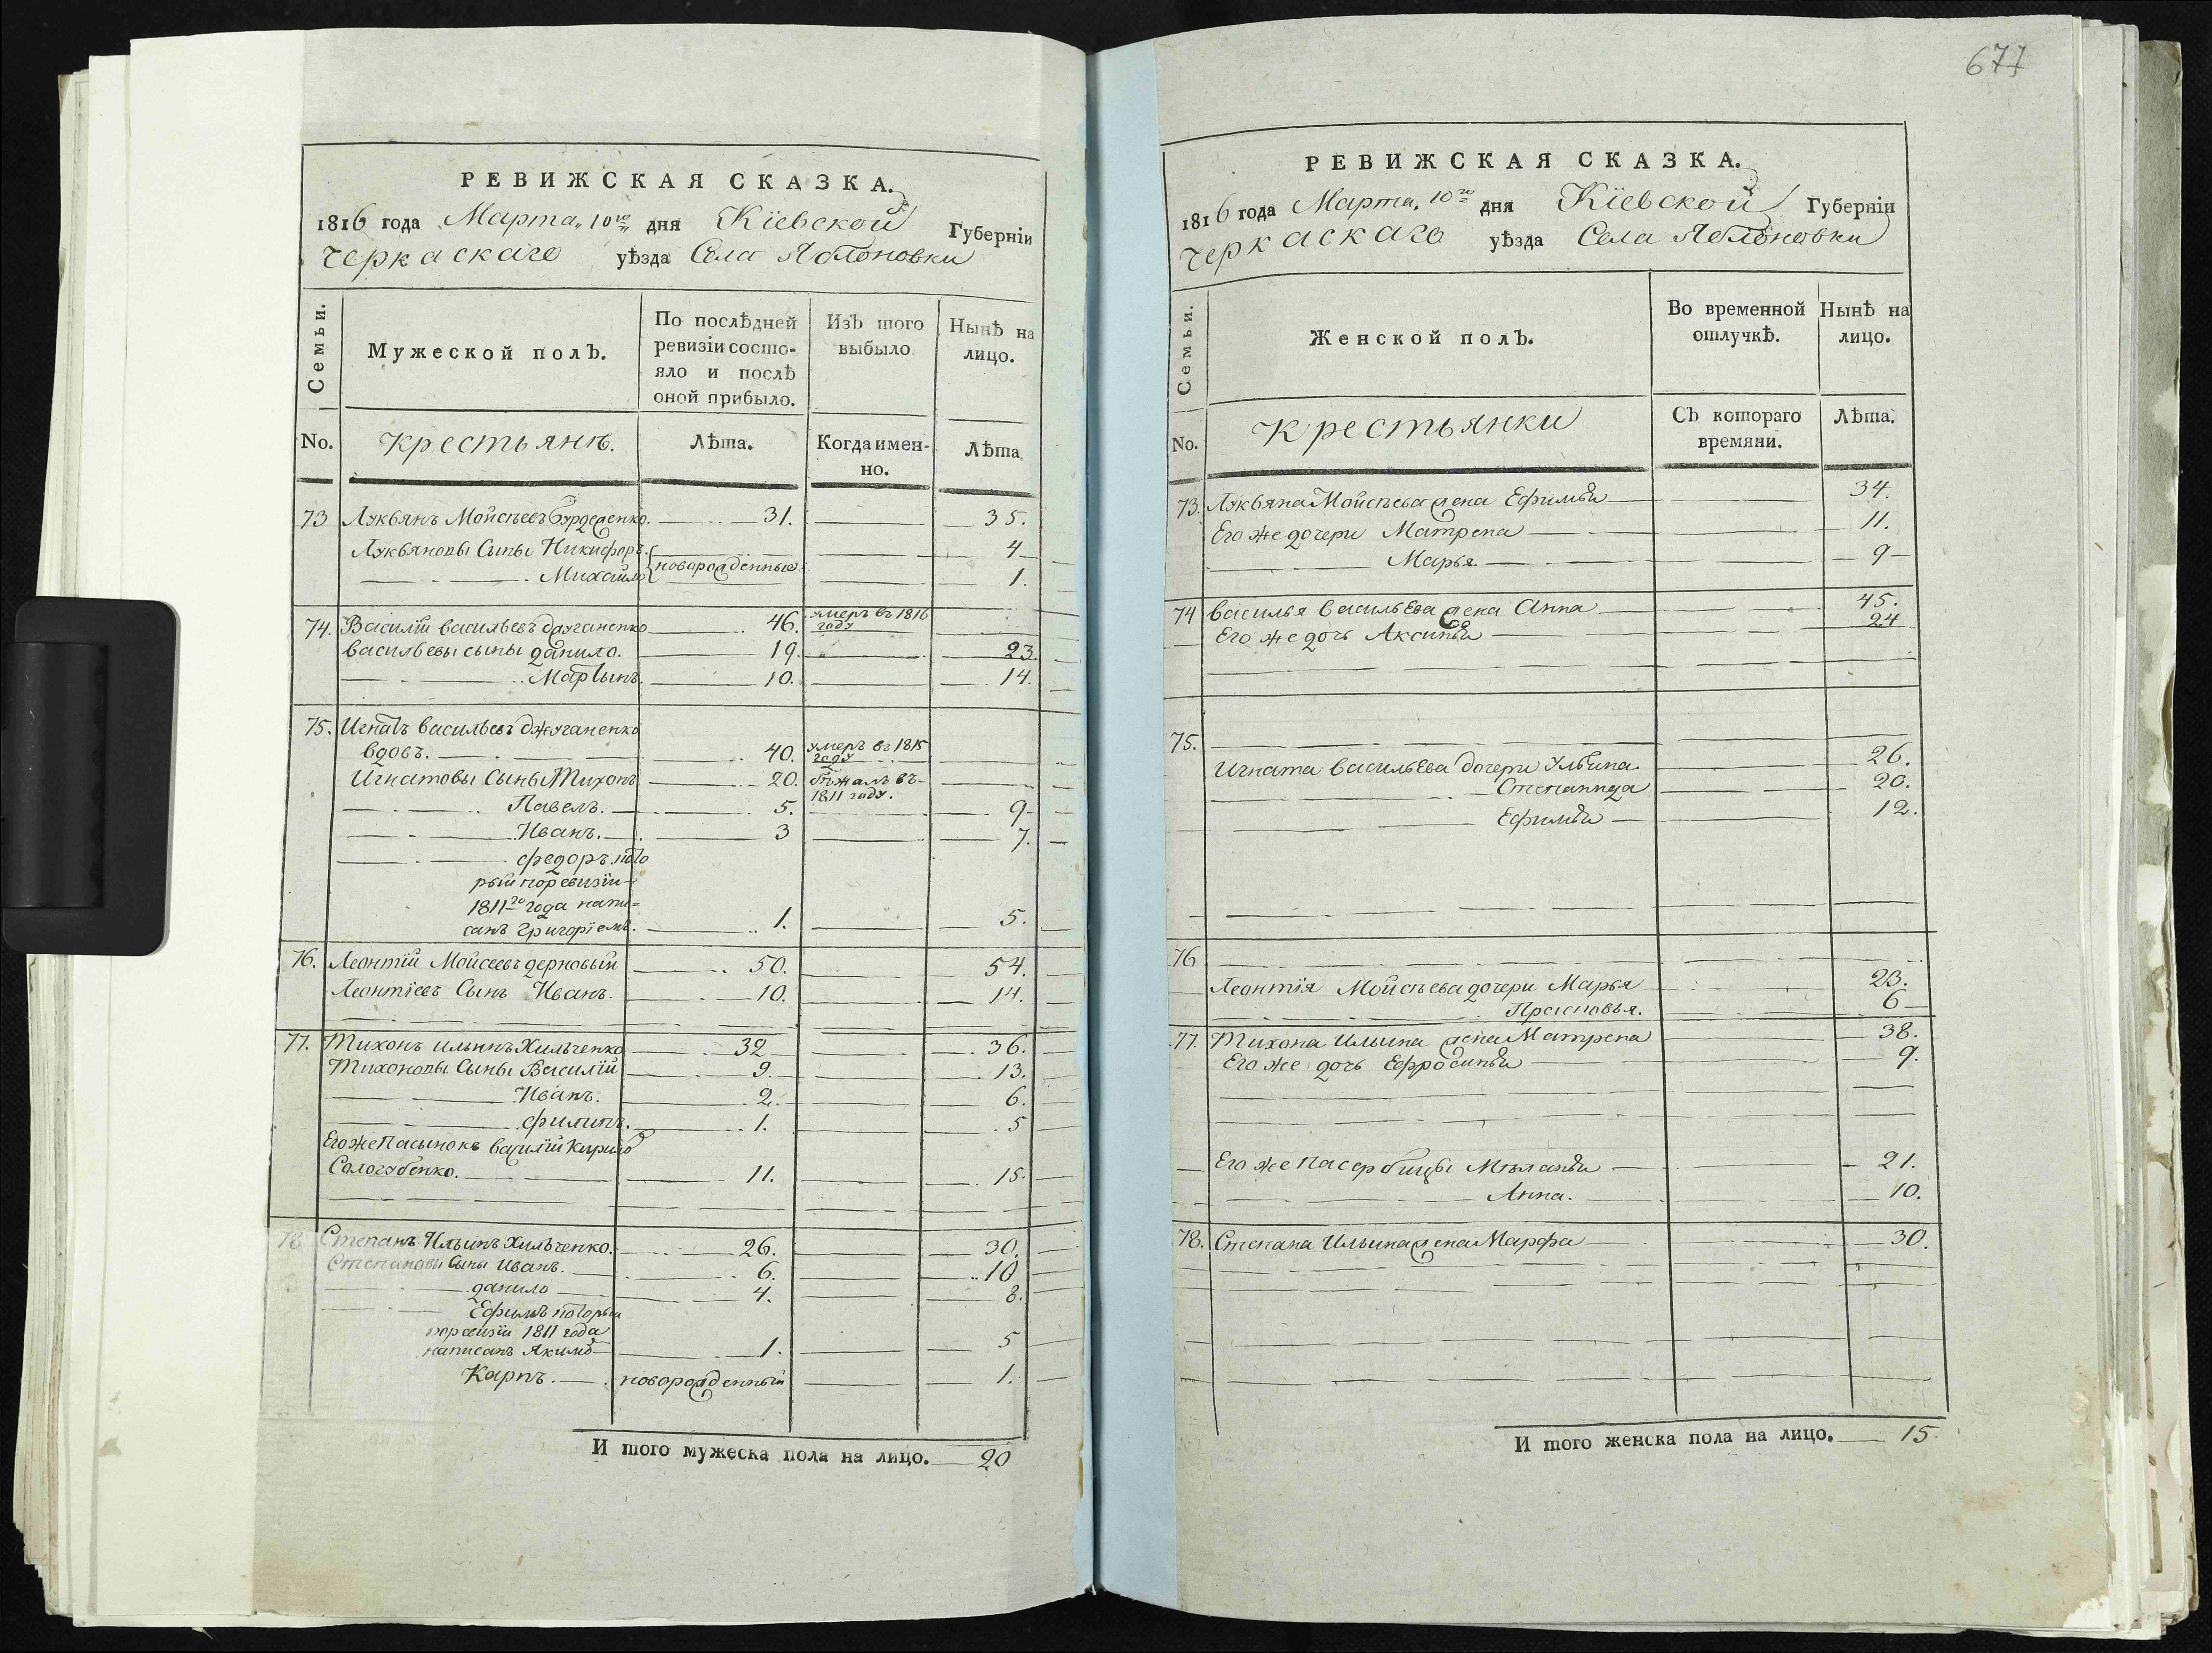 677
РЕВИЖСКАЯ СКАЗКА.
1816 года Марта 10го дня Кіевской Губерніи
Черкаскаго уѣзда Села Яблоновки
Семьи.
Мужеской полЪ.
По послѣдней
ревизіи состо-
яло и послѣ
оной прибыло.
ИзЪ того
выбыло
Нынѣ на
лицо.
No.
Крестьянѣ.
Лѣта.
Когда имен-
но.
Лѣта
73 Лукьянъ Мойсѣевъ 31. 35.
Лукьяновы Сыны Никифоръ. 4
Михайло новорожденные 1.
74. Василій Васильевъ 46. умеръ въ 1816
году
Васильевы сыны Данило. 19. 23.
Мартынъ. 10. 14.
75. Игнатъ Васильевъ Джуганенко
вдовъ. 40. умеръ въ 1815
году
Игнатовы Сыны Тихонъ 20. бѣжалъ въ
1811 году.
Павелъ. 5. 9
Иванъ. 3 7.
Федоръ кото
рый по ревизіи
1811го года напи=
санъ Григоріемъ. 1. 5.
76. Леонтій Мойсеевъ Дерновый 50. 54.
Леонтіевъ Сынъ Иванъ. 10. 14.
77. Тихонъ Ильинъ Хильченко 32 36.
Тихоновы Сыны Василій 9. 13.
Иванъ. 2. 6.
Филипъ. 1. 5
Его же Пасынокъ Василій Кирило
Сологубенко. 11. 15.
78 Степанъ Ильинъ Хильченко. 26. 30.
Степановы Сыны Иванъ. 6. 10
Данило 4. 8.
Ефимъ которы
по ревизіи 1811 года
написанъ Якимъ 1. 5
Карпъ. новорожденный 1.
И того мужеска пола на лицо. 20
РЕВИЖСКАЯ СКАЗКА.
1816 года Марта 10го дня Кіевской Губерніи
Черкаскаго уѣзда Села Яблоновки
Семьи.
Женской полЪ.
Во временной
отлучкѣ.
Нынѣ на
лицо.
No.
Крестьянки
СЪ котораго
времяни.
Лѣта.
73. Лукьяна Мойсѣева жена Ефимья 34.
Его же дочери Матрена 11.
Марья 9
74 Василья Васильева жена Анна 45.
Его же дочь Аксинья 24
75.
Игната Васильева дочери Ульяна 26.
Степанида 20.
Ефимья 12.
76
Леонтія Мойсѣева дочери Марья 23.
Прасковья. 6
77. Тихона Ильина жена Матрена 38.
Его же дочь Ефросинья 9.
Его же Пасербицы Мѣланья 21.
Анна. 10.
78. Степана Ильина жена Марфа 30.
И того женска пола на лицо. 15.